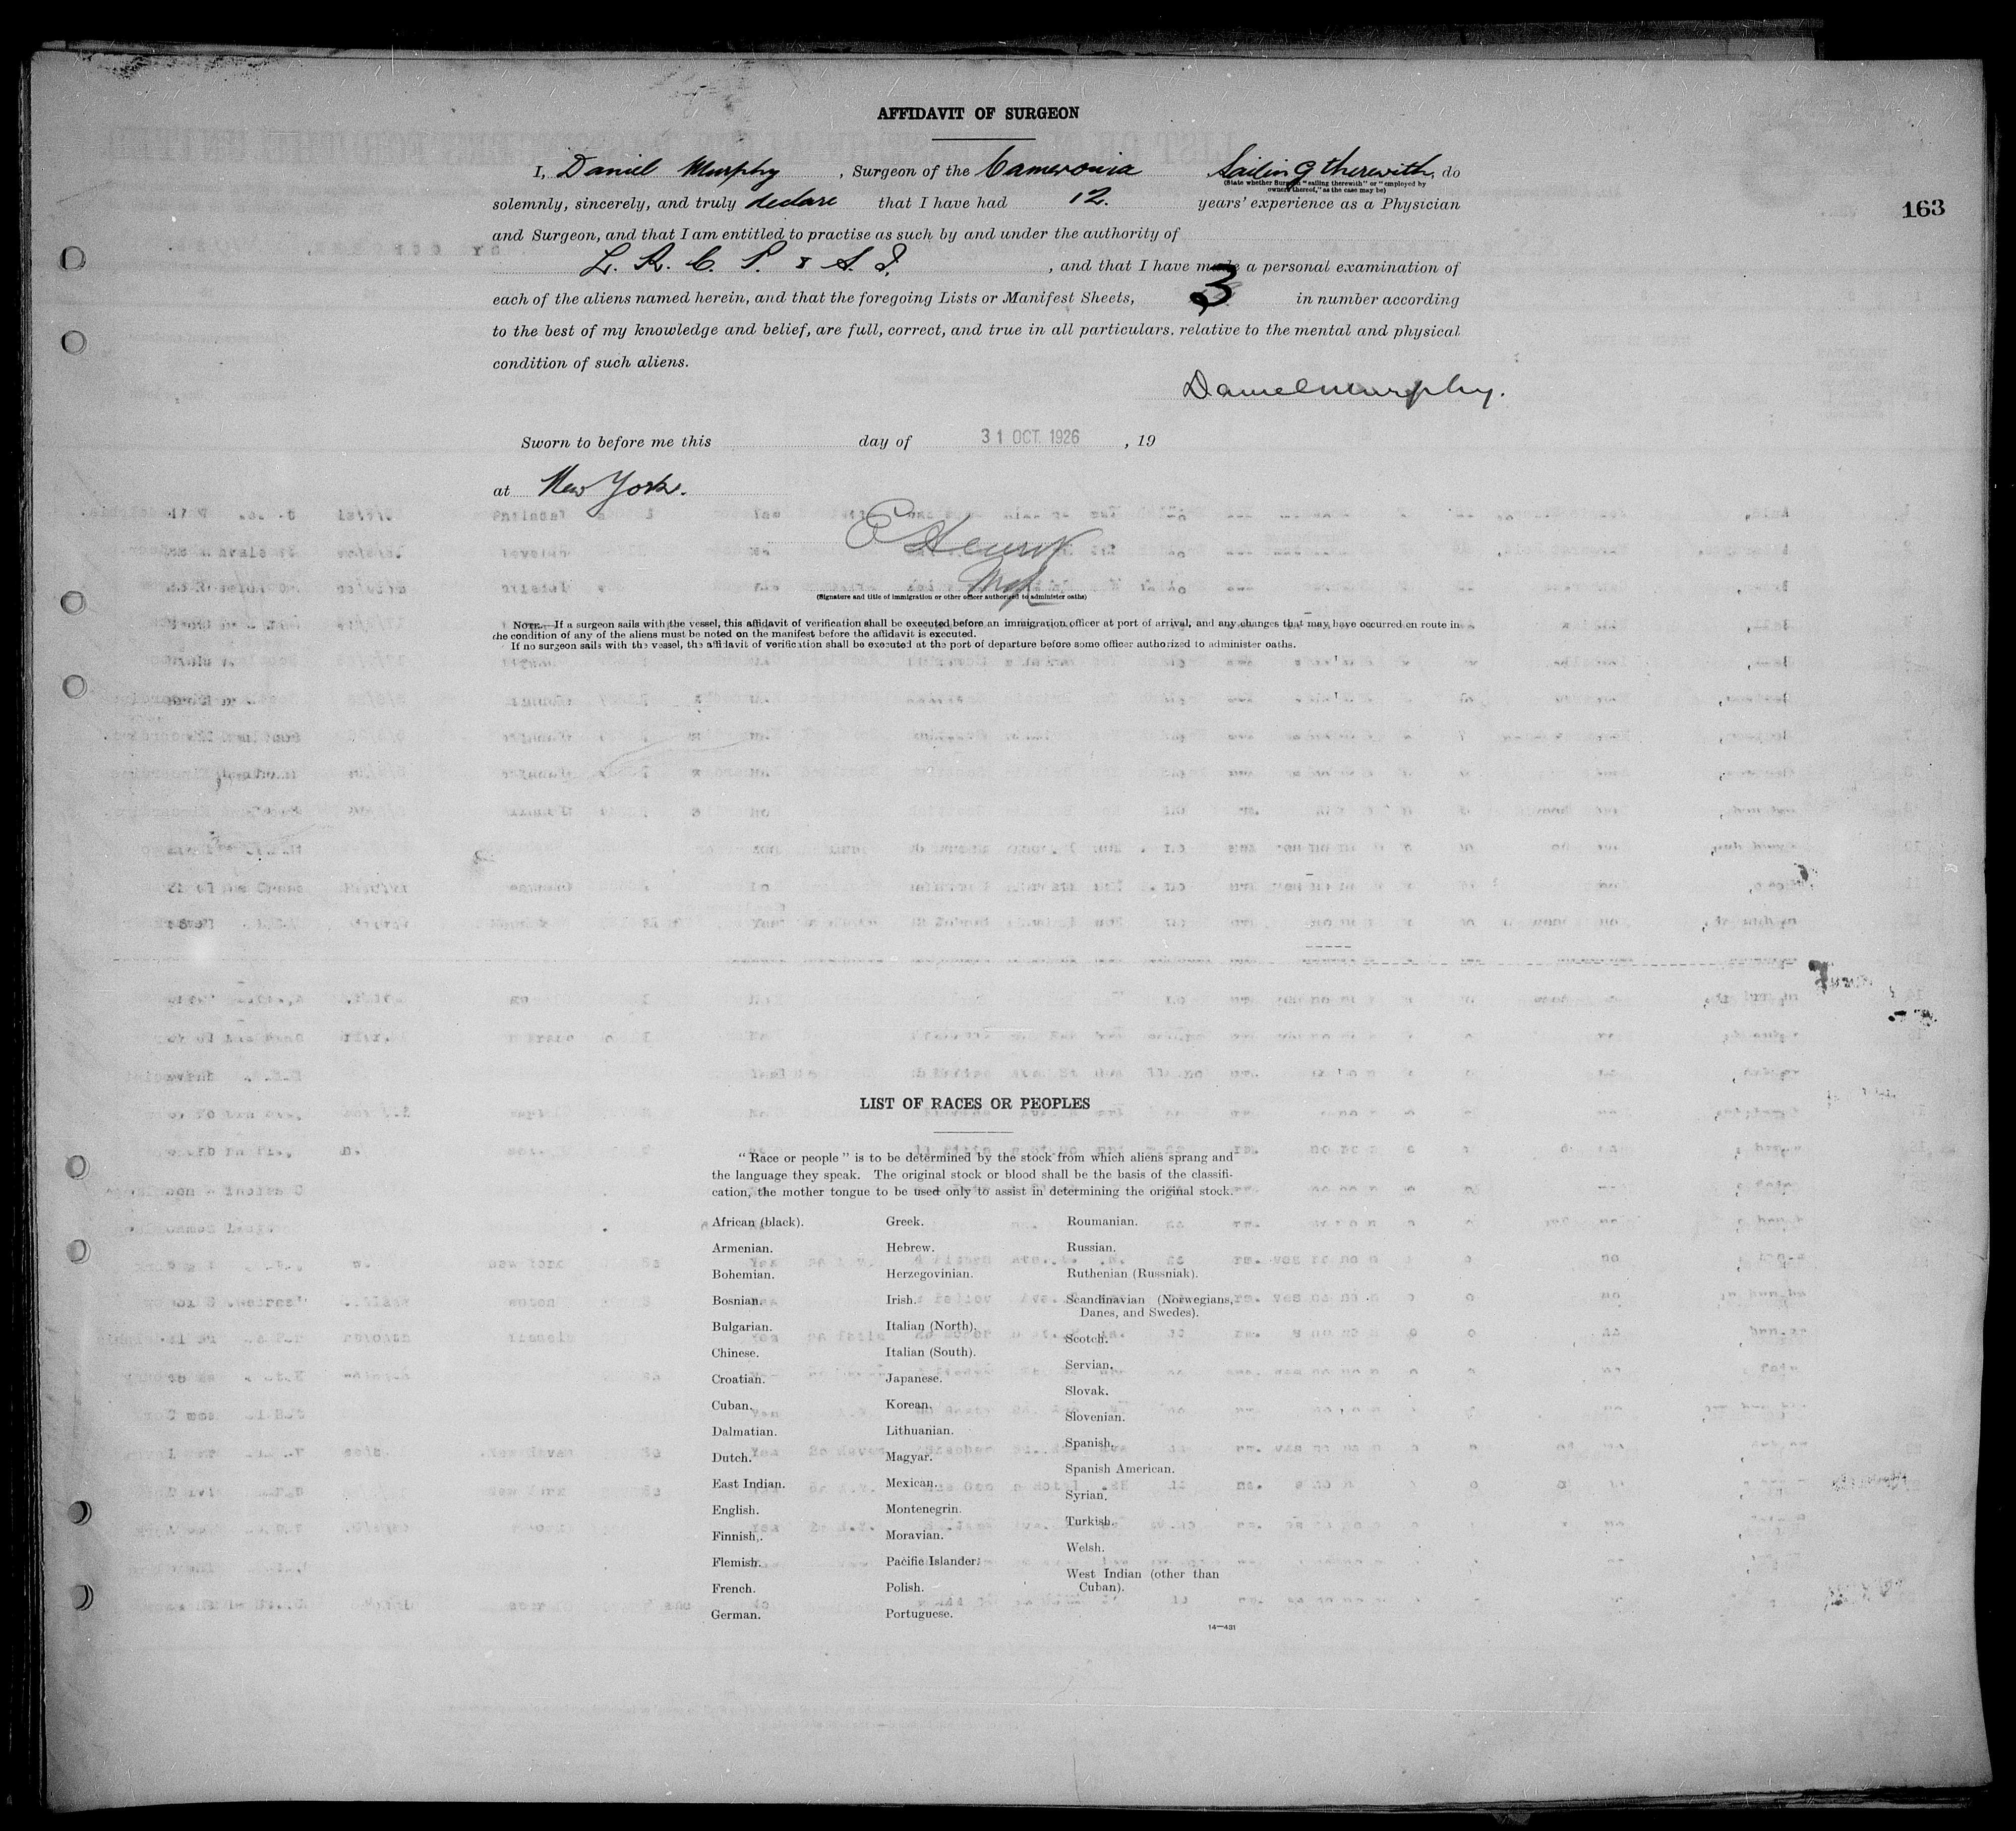 AFFIDAVIT OF SURGEON
I, Daniel Murphy, Surgeon of the Cameronia Sailing therewith, do
(State whether Surgeon "sailing therewith" or "employed by
owners thereof," as the case may be)
solemnly, sincerely, and truly declare that I have had 12. years' experience as a Physician
163
and Surgeon, and that I am entitled to practise as such by and under the authority of
L. R. C. P. & S. I., and that I have made a personal examination of
each of the aliens named herein, and that the foregoing Lists or Manifest Sheets, 3 in number according
to the best of my knowledge and belief, are full, correct, and true in all particulars, relative to the mental and physical
condition of such aliens.
Daniel Murphy.
Sworn to before me this day of 31 OCT. 1926, 19
at New York.
(Signature and title of immigration or other officer authorized to administer oaths)
NOTE.—If a surgeon sails with the vessel, this affidavit of verification shall be executed before an immigration officer at port of arrival, and any changes that may have occurred en route in
the condition of any of the aliens must be noted on the manifest before the affidavit is executed.
If no surgeon sails with the vessel, the affidavit of verification shall be executed at the port of departure before some officer authorized to administer oaths.
LIST OF RACES OR PEOPLES
"Race or people" is to be determined by the stock from which aliens sprang and
the language they speak. The original stock or blood shall be the basis of the classifi-
cation, the mother tongue to be used only to assist in determining the original stock.
African (black).
Armenian.
Bohemian.
Bosnian.
Bulgarian.
Chinese.
Croatian.
Cuban.
Dalmatian.
Dutch.
East Indian.
English.
Finnish.
Flemish.
French.
German.
Greek.
Hebrew.
Herzegovinian.
Irish.
Italian (North).
Italian (South).
Japanese.
Korean.
Lithuanian.
Magyar.
Mexican.
Montenegrin.
Moravian.
Pacific Islander.
Polish.
Portuguese.
Roumanian.
Russian.
Ruthenian (Russniak).
Scandinavian (Norwegians,
Danes, and Swedes).
Scotch.
Servian.
Slovak.
Slovenian.
Spanish.
Spanish American.
Syrian.
Turkish.
Welsh.
West Indian (other than
Cuban).
14—431